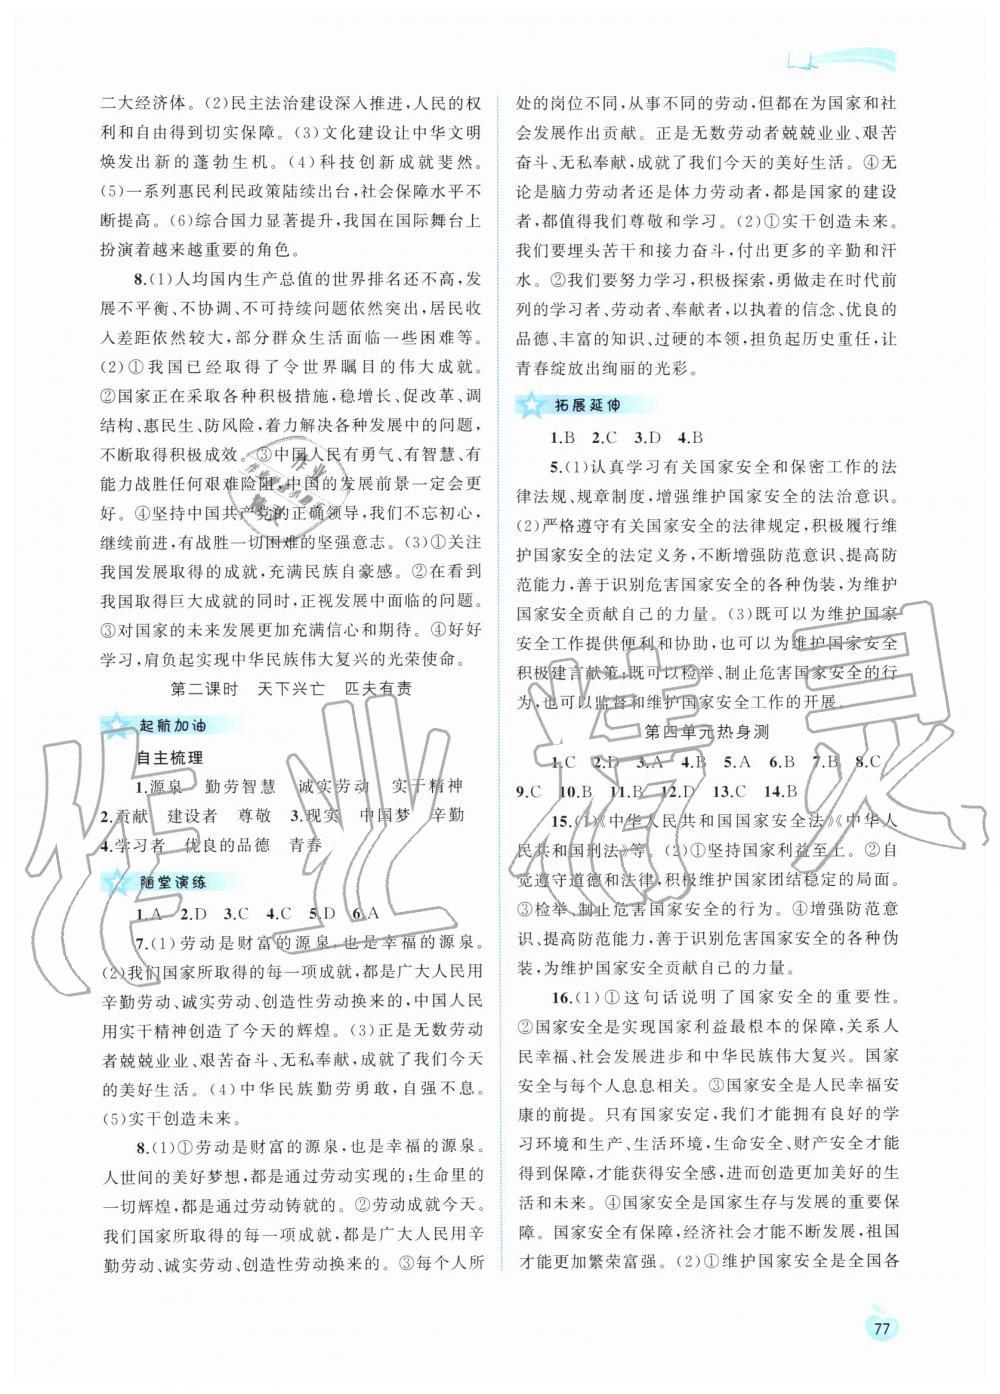 二大经济体。(2)民主法治建设深入推进,人民的权
利和自由得到切实保障。(3)文化建设让中华文明
焕发出新的蓬勃生机。(4)科技创新成就斐然。
(5)一系列惠民利民政策陆续出台,社会保障水平不
断提高。(6)综合国力显著提升,我国在国际舞台上
扮演着越来越重要的角色。
8.(1)人均国内生产总值的世界排名还不高,发
展不平衡、不协调、不可持续问题依然突出,居民收
入差距依然较大,部分群众生活面临一些困难等。
(2)①我国已经取得了令世界瞩目的伟大成就。
②国家正在采取各种积极措施,稳增长、促改革、调
结构、惠民生、防风险,着力解决各种发展中的问题,
不断积极成效。③中国人民有勇气、有智慧、有
能力战胜任何艰难险阻,中国的发展前景一定会更
好。④坚持中国共产党的正确领导,我们不忘初心,
继续前进,有战胜一切困难的坚强意志。(3)①关注
我国发展取得的成就,充满民族自豪感。②在看到
我国取得巨大成就的同时,正视发展中面临的问题。
③对国家的未来发展更加充满信心和期待。④好好
学习,肩负起实现中华民族伟大复兴的光荣使命。
第二课时 天下兴亡 匹夫有责
起航加油
自主梳理
1.源泉 勤劳智慧 诚实劳动 实干精神
2.贡献 建设者 尊敬 3.现实 中国梦 辛勤
4.学习者 优良的品德 青春
随堂演练
1.A 2.D 3.C 4.C 5.D 6.A
7.(1)劳动是财富的源泉,也是幸福的源泉。
(2)我们国家所取得的每一项成就,都是广大人民用
辛勤劳动、诚实劳动、创造性劳动换来的,中国人民
用实干精神创造了今天的辉煌。(3)正是无数劳动
者兢兢业业、艰苦奋斗、无私奉献,成就了我们今天
的美好生活。(4)中华民族勤劳勇敢,自强不息。
(5)实干创造未来。
8.(1)①劳动是财富的源泉,也是幸福的源泉。
人世间的美好梦想,都是通过劳动实现的;生命里的
一切辉煌,都是通过劳动铸就的。②劳动成就今天。
我们国家所取得的每一项成就,都是广大人民用辛
勤劳动、诚实劳动、创造性劳动换来的。③每个人所
处的岗位不同,从事不同的劳动,但都在为国家和社
会发展作出贡献。正是无数劳动者兢兢业业、艰苦
奋斗、无私奉献,成就了我们今天的美好生活。④无
论是脑力劳动者还是体力劳动者,都是国家的建设
者,都值得我们尊敬和学习。(2)①实干创造未来。
我们要埋头苦干和接力奋斗,付出更多的辛勤和汗
水。②我们要努力学习,积极探索,勇做走在时代前
列的学习者、劳动者、奉献者,以执着的信念、优良的
品德、丰富的知识、过硬的本领,担负起历史重任,让
青春绽放出绚丽的光彩。
拓展延伸
1.B 2.C 3.D 4.B
5.(1)认真学习有关国家安全和保密工作的法
律法规、规章制度,增强维护国家安全的法治意识。
(2)严格遵守有关国家安全的法律规定,积极履行维
护国家安全的法定义务,不断增强防范意识、提高防
范能力,善于识别危害国家安全的各种伪装,为维护
国家安全贡献自己的力量。(3)既可以为维护国家
安全工作提供便利和协助,也可以为维护国家安全
积极建言献策;既可以检举、制止危害国家安全行
为,也可以监督和维护国家安全工作的开展。
第四单元热身测
1.C 2.D 3.A 4.B 5.A 6.B 7.B 8.C
9.C 10.B 11.B 12.D 13.C 14.B
15.(1)《中华人民共和国国家安全法》《中华人
民共和国刑法》等。(2)①坚持国家利益至上。②自
觉遵守道德和法律,积极维护国家团结稳定的局面。
③检举、制止危害国家安全的行为。④增强防范意
识、提高防范能力,善于识别危害国家安全的各种伪
装,为维护国家安全贡献自己的力量。
16.(1)①这句话说明了国家安全的重要性。
②国家安全是实现国家利益最根本的保障,关系人
民幸福、社会发展进步和中华民族伟大复兴。国家
安全与每个人息息相关。③国家安全是人民幸福安
康的前提。只有国家安定,我们才能拥有良好的学
习环境和生产、生活环境,生命安全、财产安全才能
得到保障,才能获得安全感,进而创造更加美好的生
活和未来。④国家安全是国家生存与发展的重要保
障。国家安全有保障,经济社会才能不断发展,祖国
才能更加繁荣富强。(2)①维护国家安全是全国各
77
作业精灵